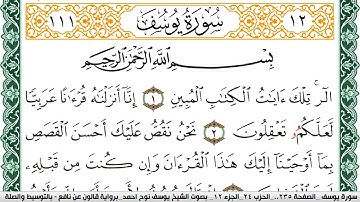 ١١١ سُورَةُ يُوسُفَ ١٢
بِسْمِ اللَّهِ الرَّحْمَٰنِ الرَّحِيمِ
الٓر تِلْكَ ءَايَٰتُ الْكِتَٰبِ الْمُبِينِ ١ إِنَّآ أَنزَلْنَٰهُ قُرْءَٰناً عَرَبِيّاً
لَّعَلَّكُمْ تَعْقِلُونَ ٢ نَحْنُ نَقُصُّ عَلَيْكَ أَحْسَنَ الْقَصَصِ
بِمَآ أَوْحَيْنَآ إِلَيْكَ هَٰذَا الْقُرْءَانَ وَإِن كُنتَ مِن قَبْلِهِۦ
سورة يوسف _ الصفحة ٢٣٥ .. الحزب ٢٤ .. الجزء ١٢ _ بصوت الشيخ يوسف نوح أحمد _ برواية قالون عن نافع - بالتوسيط والصلة